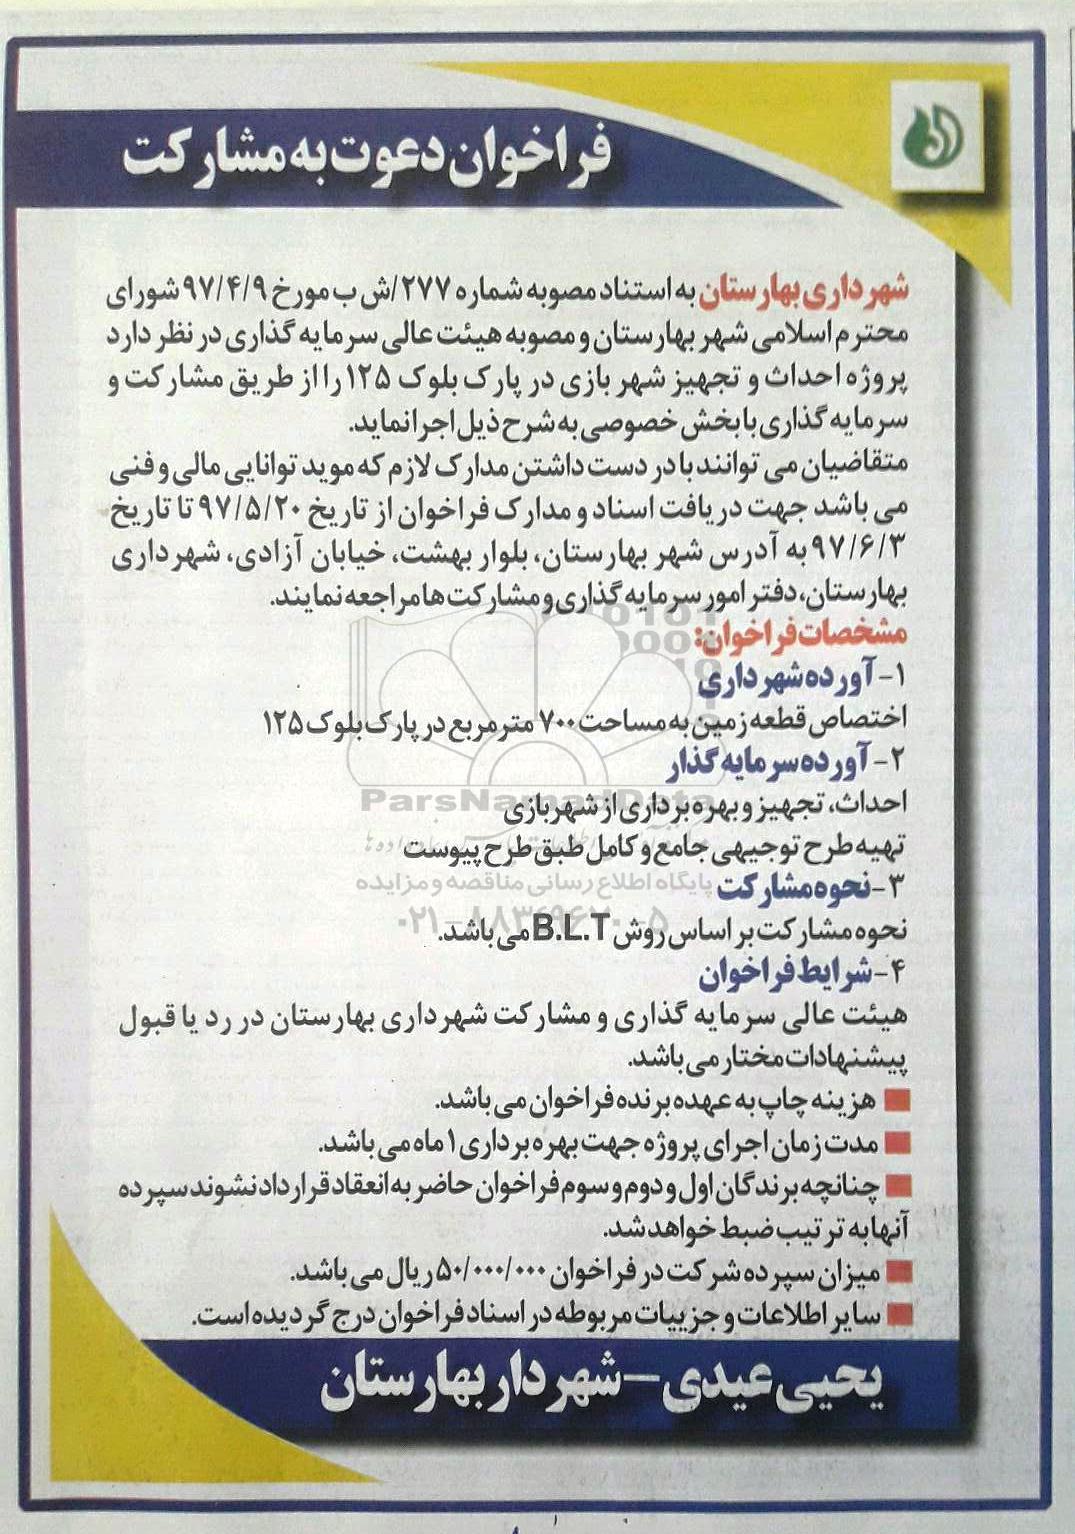 فراخوان دعوت به مشارکت
شهرداری بهارستان به استناد مصوبه شماره ۲۷۷/ش ب مورخ ۹۷/۴/۹ شورای
محترم اسلامی شهر بهارستان و مصوبه هیئت عالی سرمایه گذاری در نظر دارد
پروژه احداث و تجهیز شهر بازی در پارک بلوک ۱۲۵ را از طریق مشارکت و
سرمایه گذاری با بخش خصوصی به شرح ذیل اجرا نماید.
متقاضیان می توانند با در دست داشتن مدارک لازم که موید توانایی مالی و فنی
می باشد جهت دریافت اسناد و مدارک فراخوان از تاریخ ۹۷/۵/۲۰ تا تاریخ
۹۷/۶/۳ به آدرس شهر بهارستان، بلوار بهشت، خیابان آزادی، شهرداری
بهارستان، دفتر امور سرمایه گذاری و مشارکت ها مراجعه نمایند.
مشخصات فراخوان:
۱- آورده شهرداری
اختصاص قطعه زمین به مساحت ۷۰۰ مترمربع در پارک بلوک ۱۲۵
۲- آورده سرمایه گذار
احداث، تجهیز و بهره برداری از شهربازی
ParsNamadData
تهیه طرح توجیهی جامع و کامل طبق طرح پیوست
پایگاه اطلاع رسانی مناقصه و مزایده
۳- نحوه مشارکت
نحوه مشارکت بر اساس روش B.L.T می باشد.
۴- شرایط فراخوان
هیئت عالی سرمایه گذاری و مشارکت شهرداری بهارستان در رد یا قبول
پیشنهادات مختار می باشد.
هزینه چاپ به عهده برنده فراخوان می باشد.
مدت زمان اجرای پروژه جهت بهره برداری ۱ ماه می باشد.
چنانچه برندگان اول و دوم و سوم فراخوان حاضر به انعقاد قرارداد نشوند سپرده
آنها به ترتیب ضبط خواهد شد.
میزان سپرده شرکت در فراخوان ۵۰/۰۰۰/۰۰۰ ریال می باشد.
سایر اطلاعات و جزییات مربوطه در اسناد فراخوان درج گردیده است.
یحیی عیدی - شهردار بهارستان